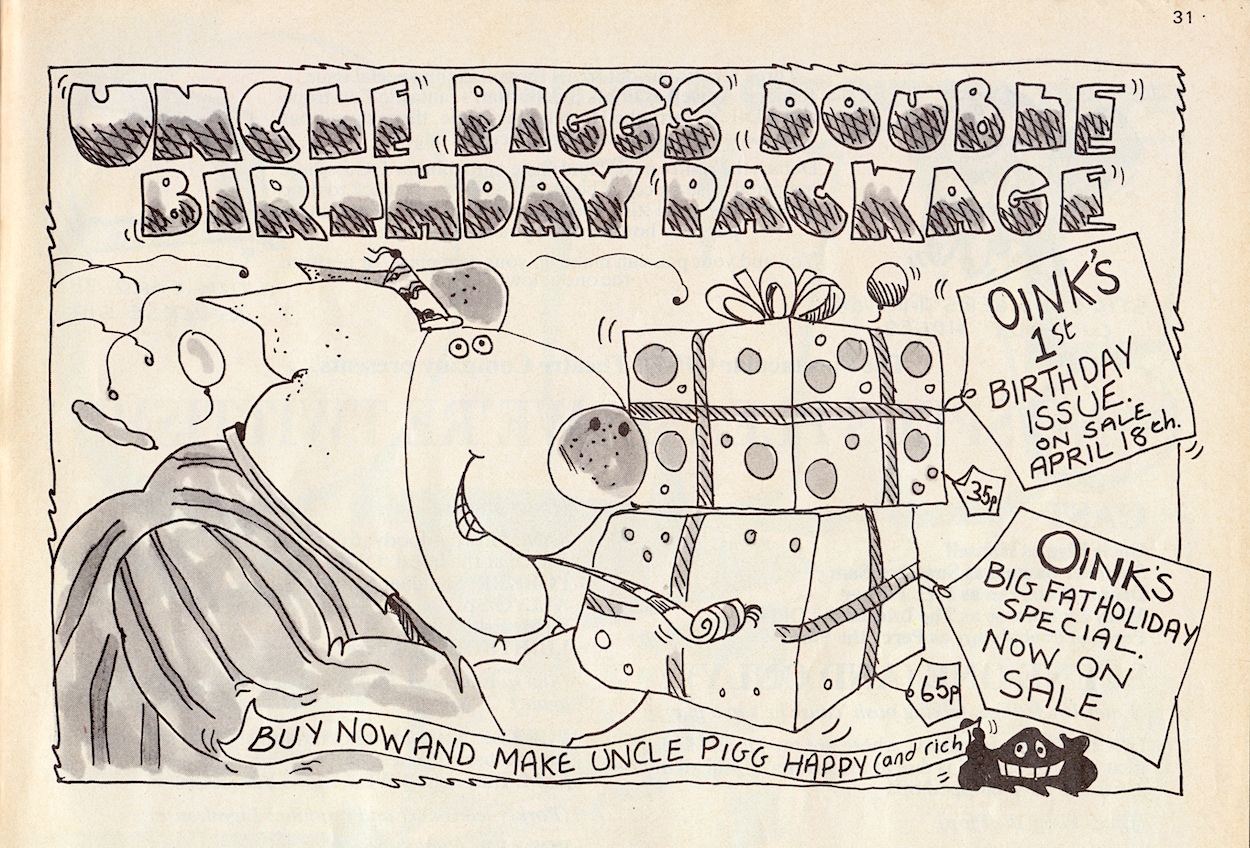 31
UNCLE PIGG'S DOUBLE
BIRTHDAY PACKAGE
OINK'S
1st
BIRTHDAY
ISSUE.
ON SALE
APRIL 18th.
35p
OINK'S
BIG FAT HOLIDAY
SPECIAL.
NOW ON
SALE
65p
BUY NOW AND MAKE UNCLE PIGG HAPPY (and rich)